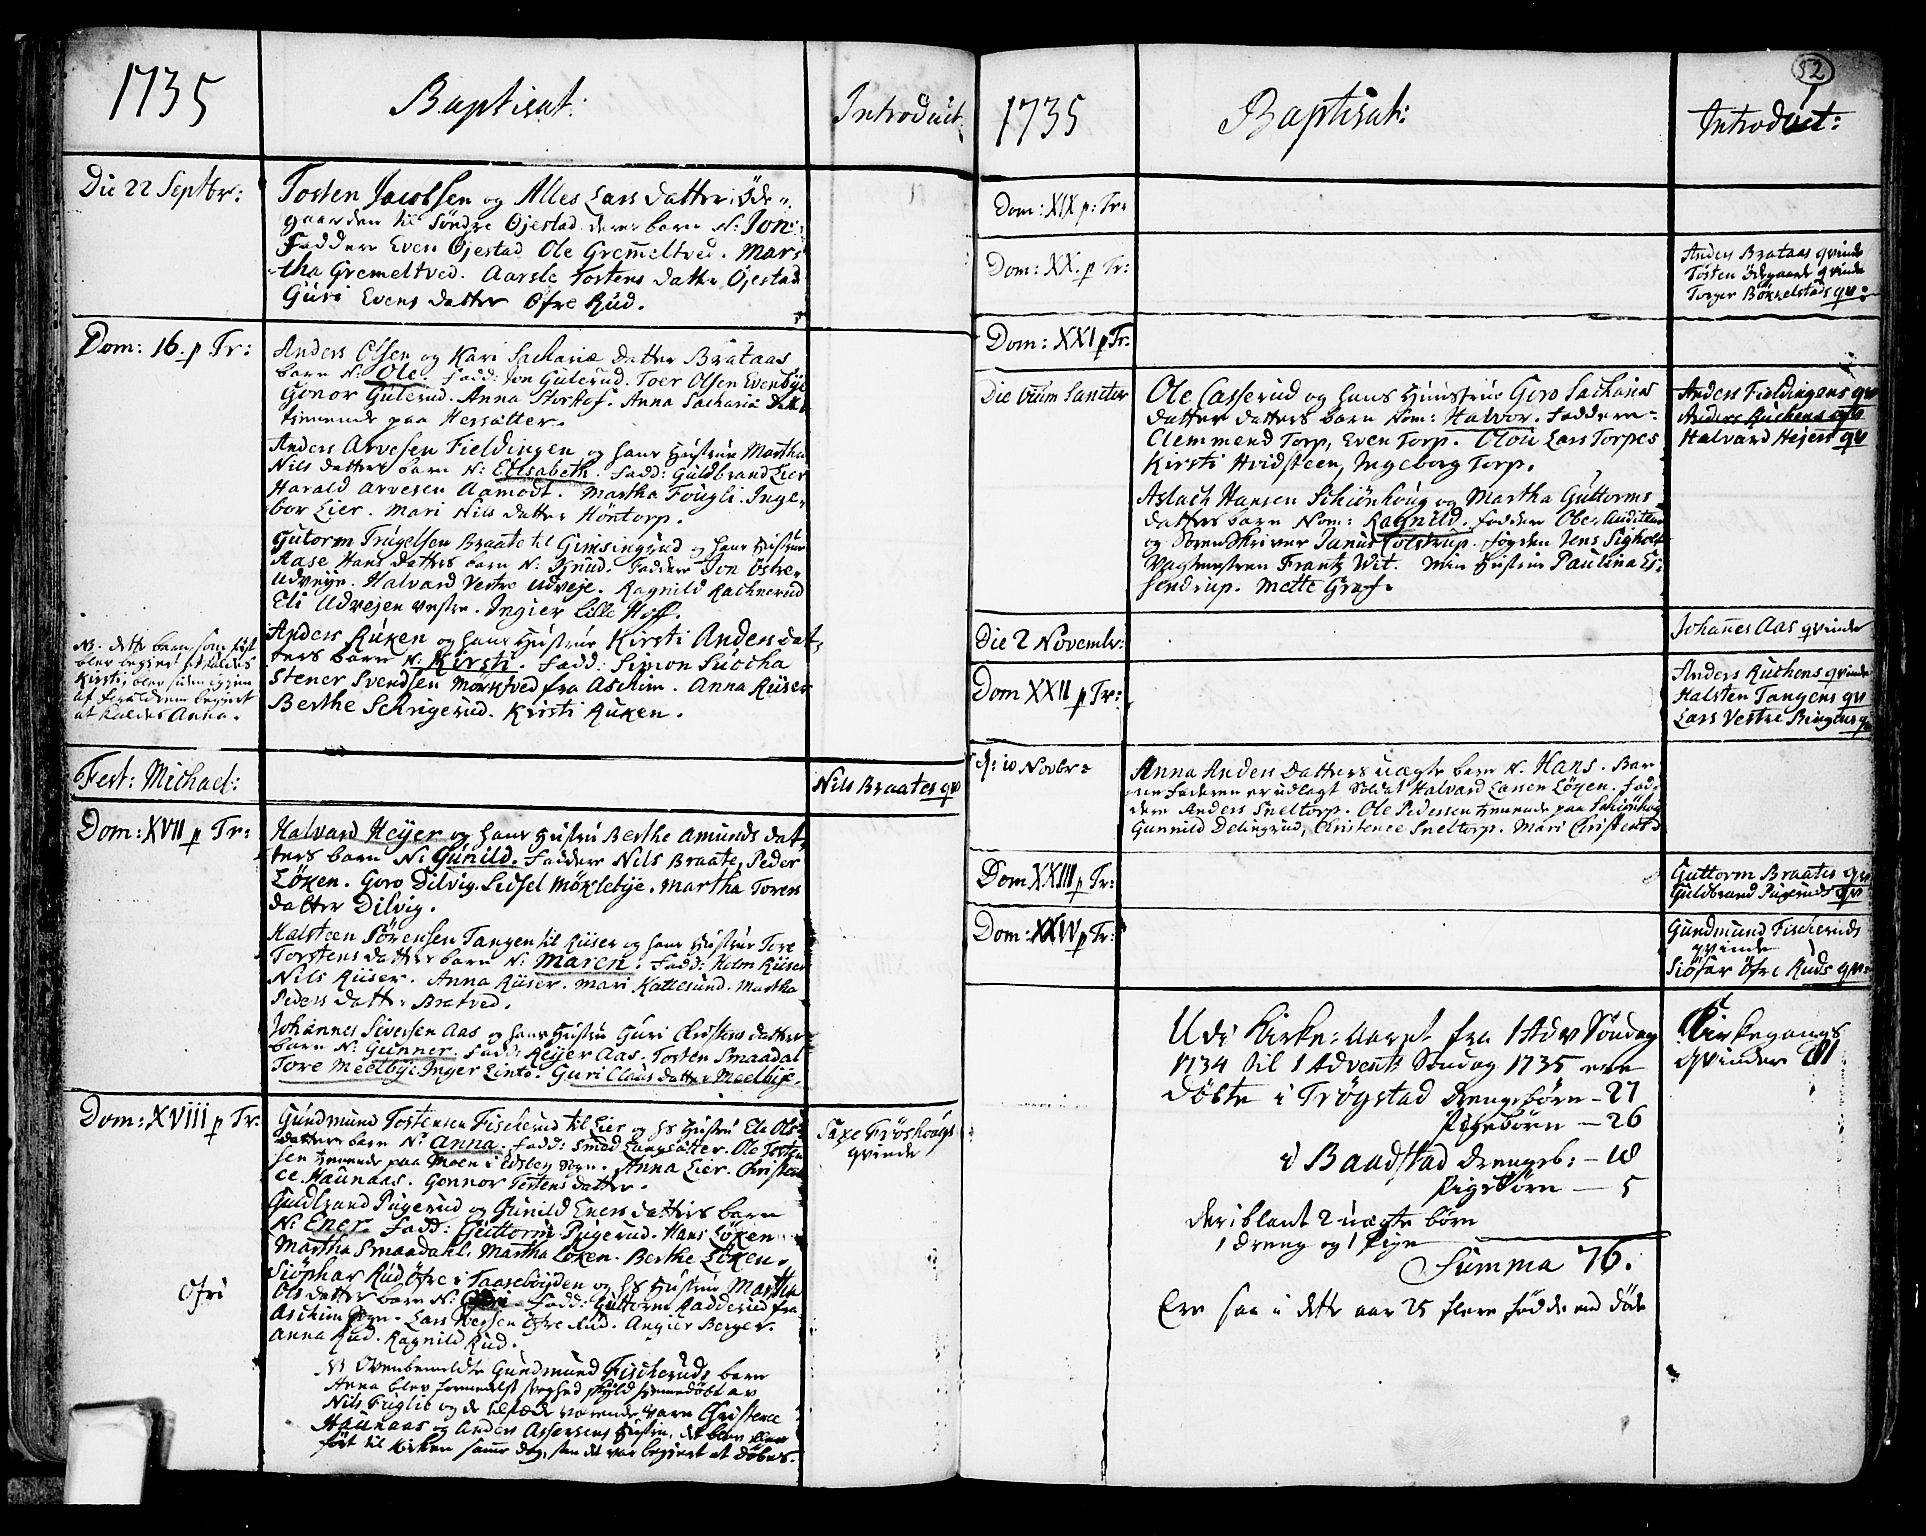 1735
Baptisat:
Introduct
Die 22 Septbr:
Tosten Jacobsen og Alles Lars datter i Öde-
gaarden til Söndre Öjestad deres barn N: Jon:
Faddere Even Öjestad Ole Gremeltved. Mar-
tha Gremeltved. Aarsle Tostens datter Öjestad
Guri Evens datter Öfre Rud.
Dom: 16. p Tr:
Anders Olsen og Kari Sachariæ datter Brataas
barn N: Ole. Fadd: Jon Guterud. Toer Olsen Evenbÿe
Gonor Guterud. Anna Storhof. Anna Sachariæ datt:
tienende paa Hersätter.
Anders Arvesen Fieldingen og hans Hustrue Martha
Nils datters barn N: Elisabeth. Fadd: Guldbrand Lier
Harald Arvesen Aamodt. Martha Fougli. Inge-
bor Lier. Mari Nils datter Höntorp.
Gutorm Trugelsen Braate til Gimsingrud og hans Hustrue
Aase Hans datters barn N: Knud. Faddere Jon Östre
Udveÿe. Halvard Vestre Udveje. Ragnild Rachnerud
Eli Udvejen vestre. Ingier Lille Hoff.
Anders Ruken og hans Hustrue Kirsti Anders dat-
ters barn N: Kirsti. Fadd: Simon Suocha
Stener Svendsen Mörktved fra Aschim. Anna Riiser
Berthe Schrigerud. Kirsti Ruken.
NB. dette barn, som först
blev begiert at kaldes
Kirsti, blev siden igien
af Forældrene begiert
at kaldes Anna.
Fest: Michael:
Nils Braates qv
Dom: XVII p Tr:
Halvard Heÿer og hans Hustru Berthe Amunds dat-
ters barn N: Gunild. Faddere Nils Braate, Peder
Löken. Goro Dilvig. Sidsel Möklebÿe. Martha Torens
datter Dilvig.
Halsteen Sörensen Tangen til Riiser og hans Hustrue Tore
Torstens datters barn N: Maren. Fadd: Holm Riiser
Nils Riiser. Anna Riiser. Mari Kattesund. Martha
Peders datter Bratved.
Johannes Sivertsen Aas og hans Hustru Guri Christens datters
barn N: Gunner. Fadd: Reÿer Aas. Tosten Smaadal
Tore Meelbÿe Inger Linto. Guri Claus datter Meelbÿe.
Dom: XVIII p Tr:
Gundmund Tostensen Fischerud til Lier og hs Hustru Ele Ols
datters barn N: Anna. Fadd: Smed Langsätter. Ole Tosten
sen tienende paa Moen i Edsbeg Sogn. Anna Lier. Christen
ce Haunaas. Gonnor Tostens datter.
Saxe Fröshougs
qvinde
Guldbrand Pugerud og Gunild Eners datters barn
N: Ener. Fadd: Guttorm Pugerud. Hans Löken
Martha Smaadahl. Martha Löken. Berthe Löken.
Siöphar Rud Öfre i Taasebÿeden og hs Hustrue Martha
Ols datters barn N: Fadd: Guttorm Radderud fra
Ofri
Aschim Sogn. Lars Iversen Öfre Rud. Angier Berger.
Anna Rud. Ragnild Rud.
NB Ovenbemeldte Gundmund Fischeruds barn
Anna blev formedelst svaghed skÿld hiemmedöbt av
Nils Fuglie og de tilstæde værende vare Christence
Haunaas og Anders Assersens Hustru, det blev
fört til Kirken samme dag, som det var begiert at döbes.
52
1735
Baptisat:
Introduct:
Dom: XIX p: Tr:
Dom: XX. p Tr:
Anders Brataas qvinde
Tosten Ödegaards qvinde
Torger Bökkelstads qv:
Dom: XXI p Tr:
Die Omnium Sanctor
Ole Casserud og hans Hustrue Goro Sacharias
datter datters barn Nom: Halvor. Faddere:
Clemmend Torp, Even Torp. Olou Lars Torpes
Kirsti Hvidsteen, Ingeborg Torp.
Anders Fieldingens qv
Anders Ruchens qv
Halvard Hejers qv
Aslach Hansen Schiönhoug og Martha Guttorms
datters barn Nom: Ragnild. Faddere Ober Auditeur
og Sorenskriver Janus Colstrup. Fogden Jens Sigholt
Vagtmestren Frantz Wit. Min Hustrue Paulina Es-
sendrup. Mette Graf.
Die 2 Novembr:
Johannes Aas qvinde
Dom XXII p Tr:
Anders Ruchens qvinde
Halsten Tangens qv
Lars Vestre Bingens q
d: 10 Novbr:
Anna Anders datters uægte barn N. Hans. Bar-
nefaderen er udlagt Soldat Halvard Larsen Löken. Fad-
dere Anders Sneltorp. Ole Pedersen tienende paa Schiönhog
Gunnild Delingrud, Christence Sneltorp. Mari Christens
Dom XXIII p Tr:
Guttorm Braates qv
Guldbrand Pugeruds qv
Dom: XXIV p Tr:
Gundmund Fischeruds
qvinde
Siöfar Öfre Ruds qv:
Udi Kirke-Aaret fra 1 Adv Söndag
1734 til 1 Advents Söndag 1735 ere
döbte i Trögstad Drengebörn - 27
Pigebörn - 26
i Baadstad Drengeb: - 18
Pigebörn - 5
deriblant 2 uægte börn
1 dreng og 1 Pige
Summa 76.
Ere saa i dette aar 25 flere födde end döde
Kirkegangs
qvinder